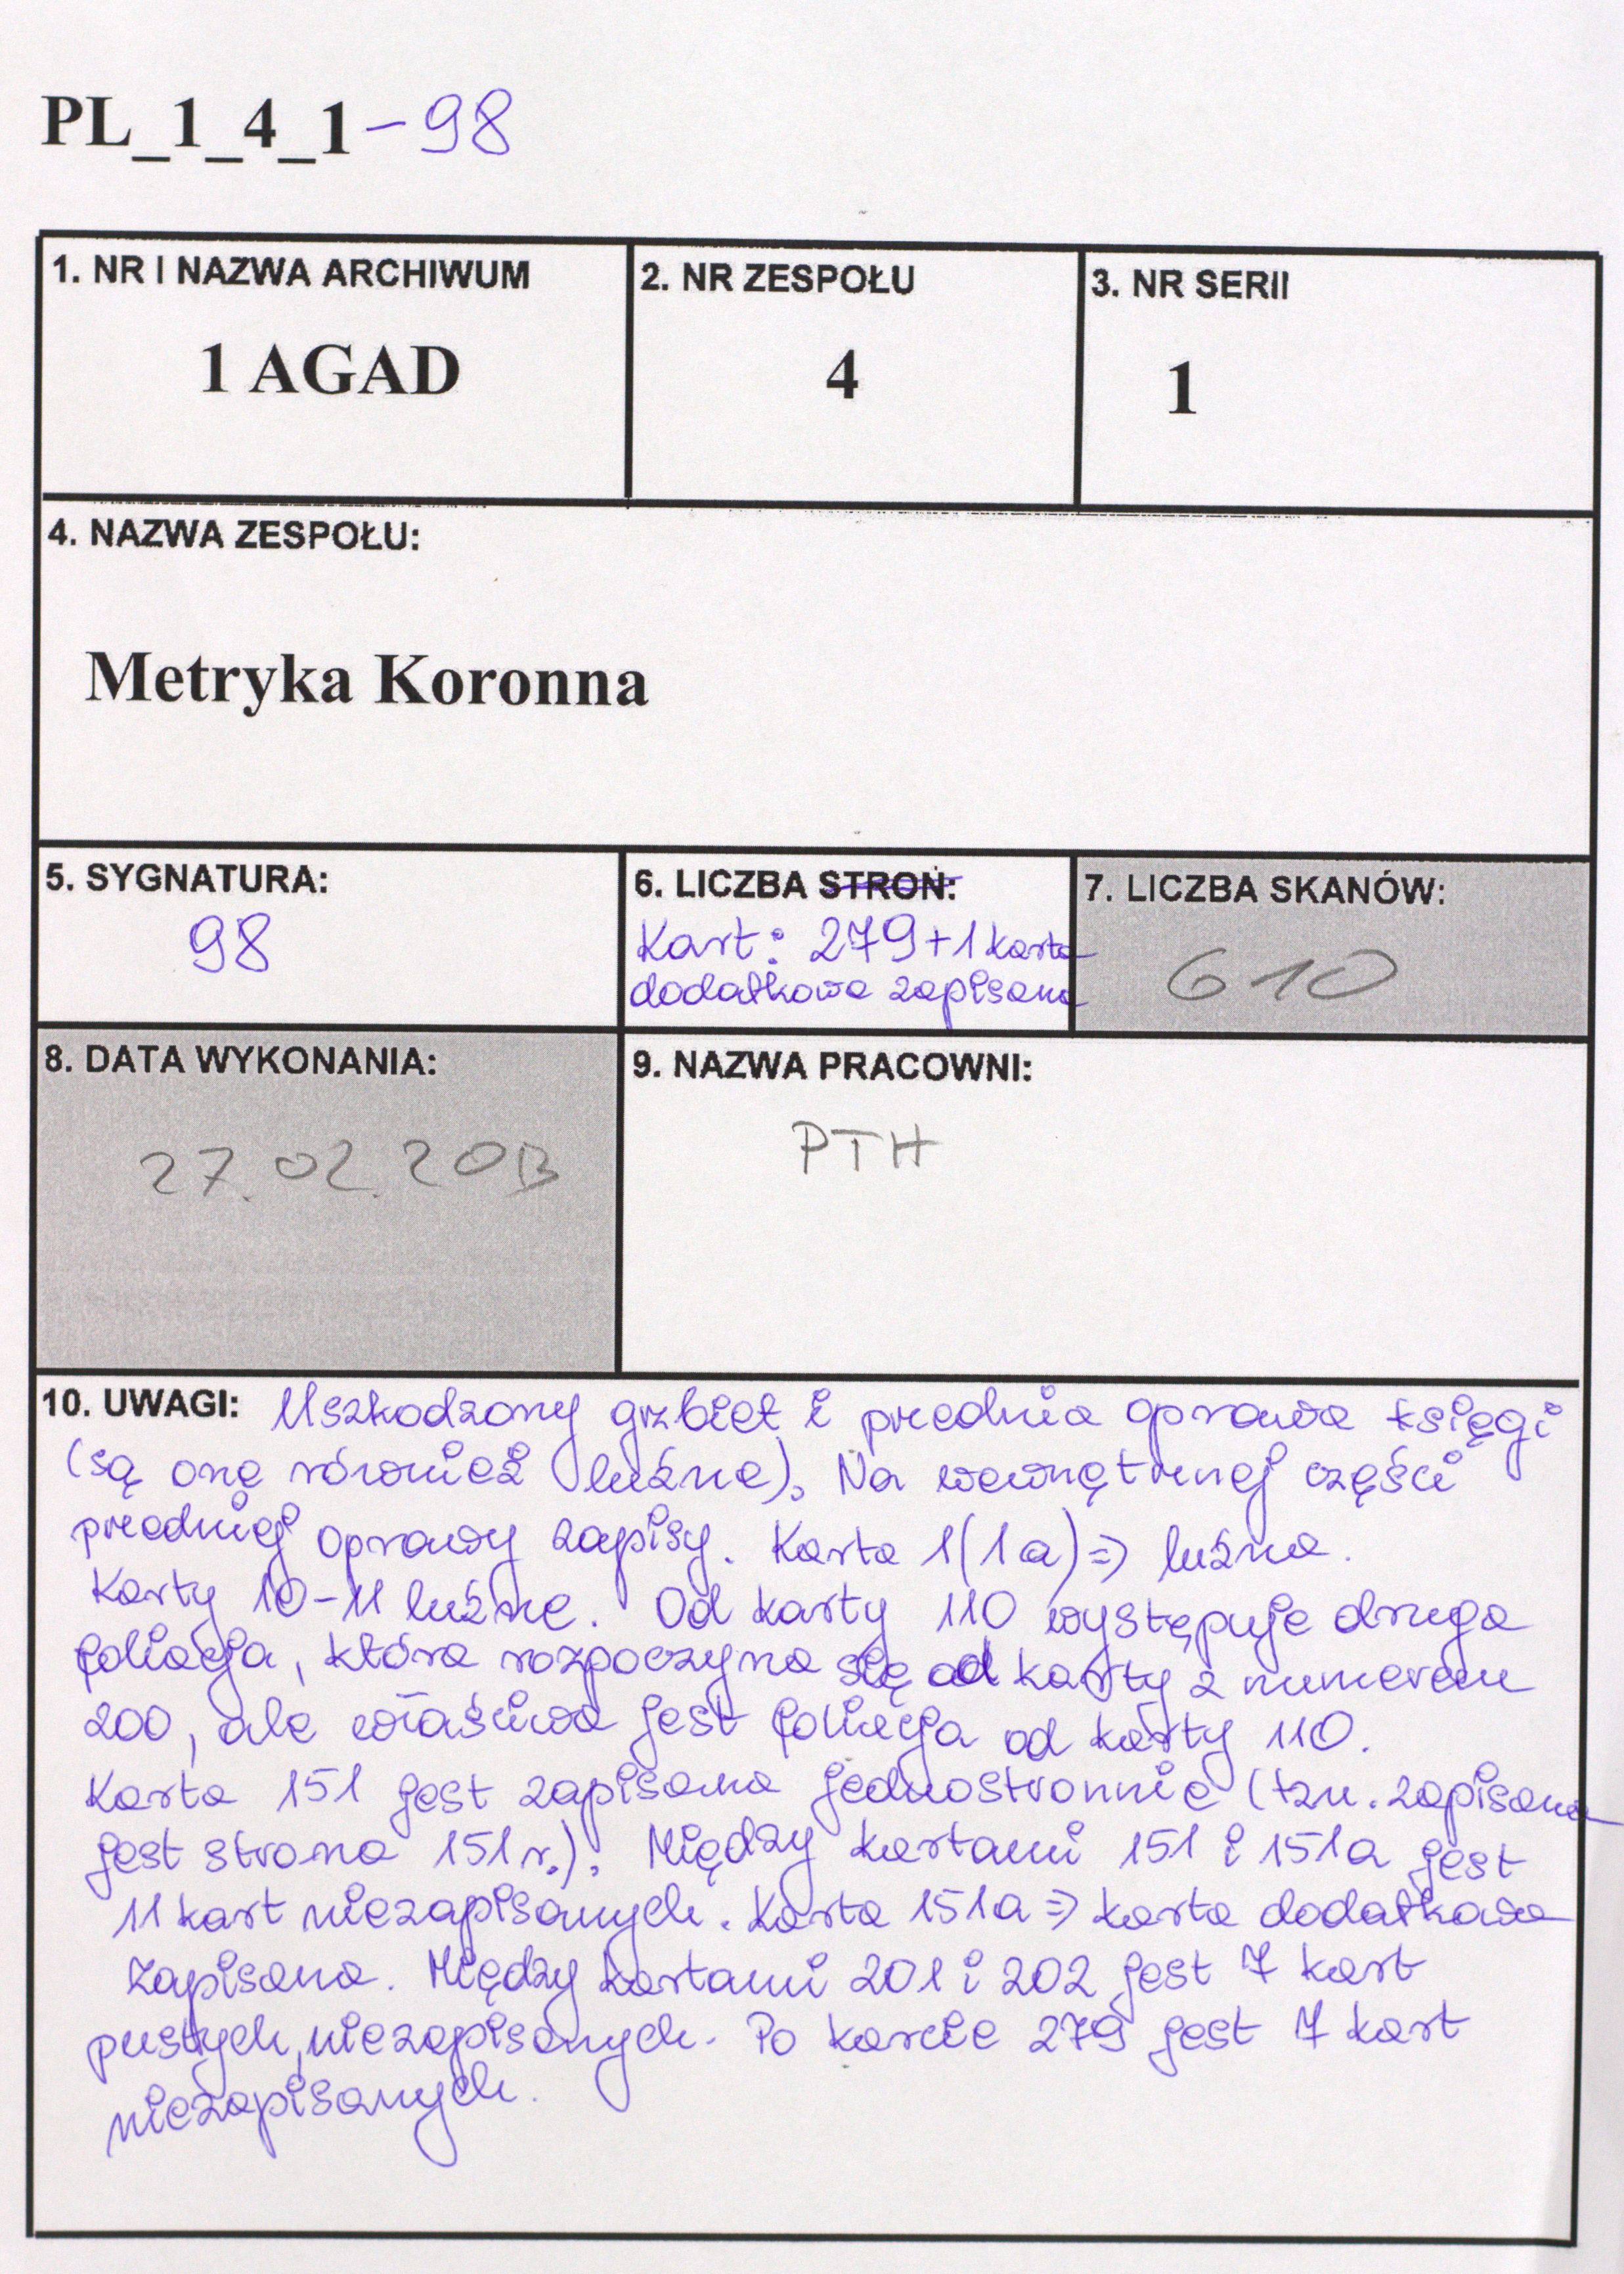 PL_1_4_1-98
1. NR I NAZWA ARCHIWUM
1 AGAD
2. NR ZESPOŁU
4
3. NR SERII
1
4. NAZWA ZESPOŁU:
Metryka Koronna
5. SYGNATURA:
98
6. LICZBA STRON:
Kart: 279+1 karta
dodatkowa zapisana
7. LICZBA SKANÓW:
610
8. DATA WYKONANIA:
27.02.2013
9. NAZWA PRACOWNI:
PTH
10. UWAGI: Uszkodzony grzbiet i przednia oprawa księgi
(są one również luźne). Na wewnętrznej części
przedniej oprawy zapisy. Karta 1(1a)⇒ luźna.
Karty 10-11 luźne. Od karty 110 występuje druga
foliacja, która rozpoczyna się od karty z numerem
200, ale właściwa jest foliacja od karty 110.
Karta 151 jest zapisana jednostronnie (tzn. zapisana
jest strona 151r.). Między kartami 151 i 151a jest
11 kart niezapisanych. Karta 151a ⇒ karta dodatkowa
zapisana. Między kartami 201 i 202 jest 7 kart
pustych, niezapisanych. Po karcie 279 jest 7 kart
niezapisanych.